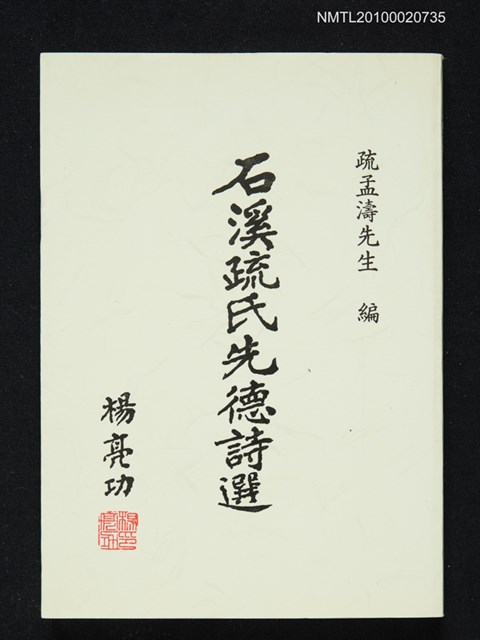 NMTL20100020735
疏孟濤先生 編
石溪疏氏先德詩選
楊亮功